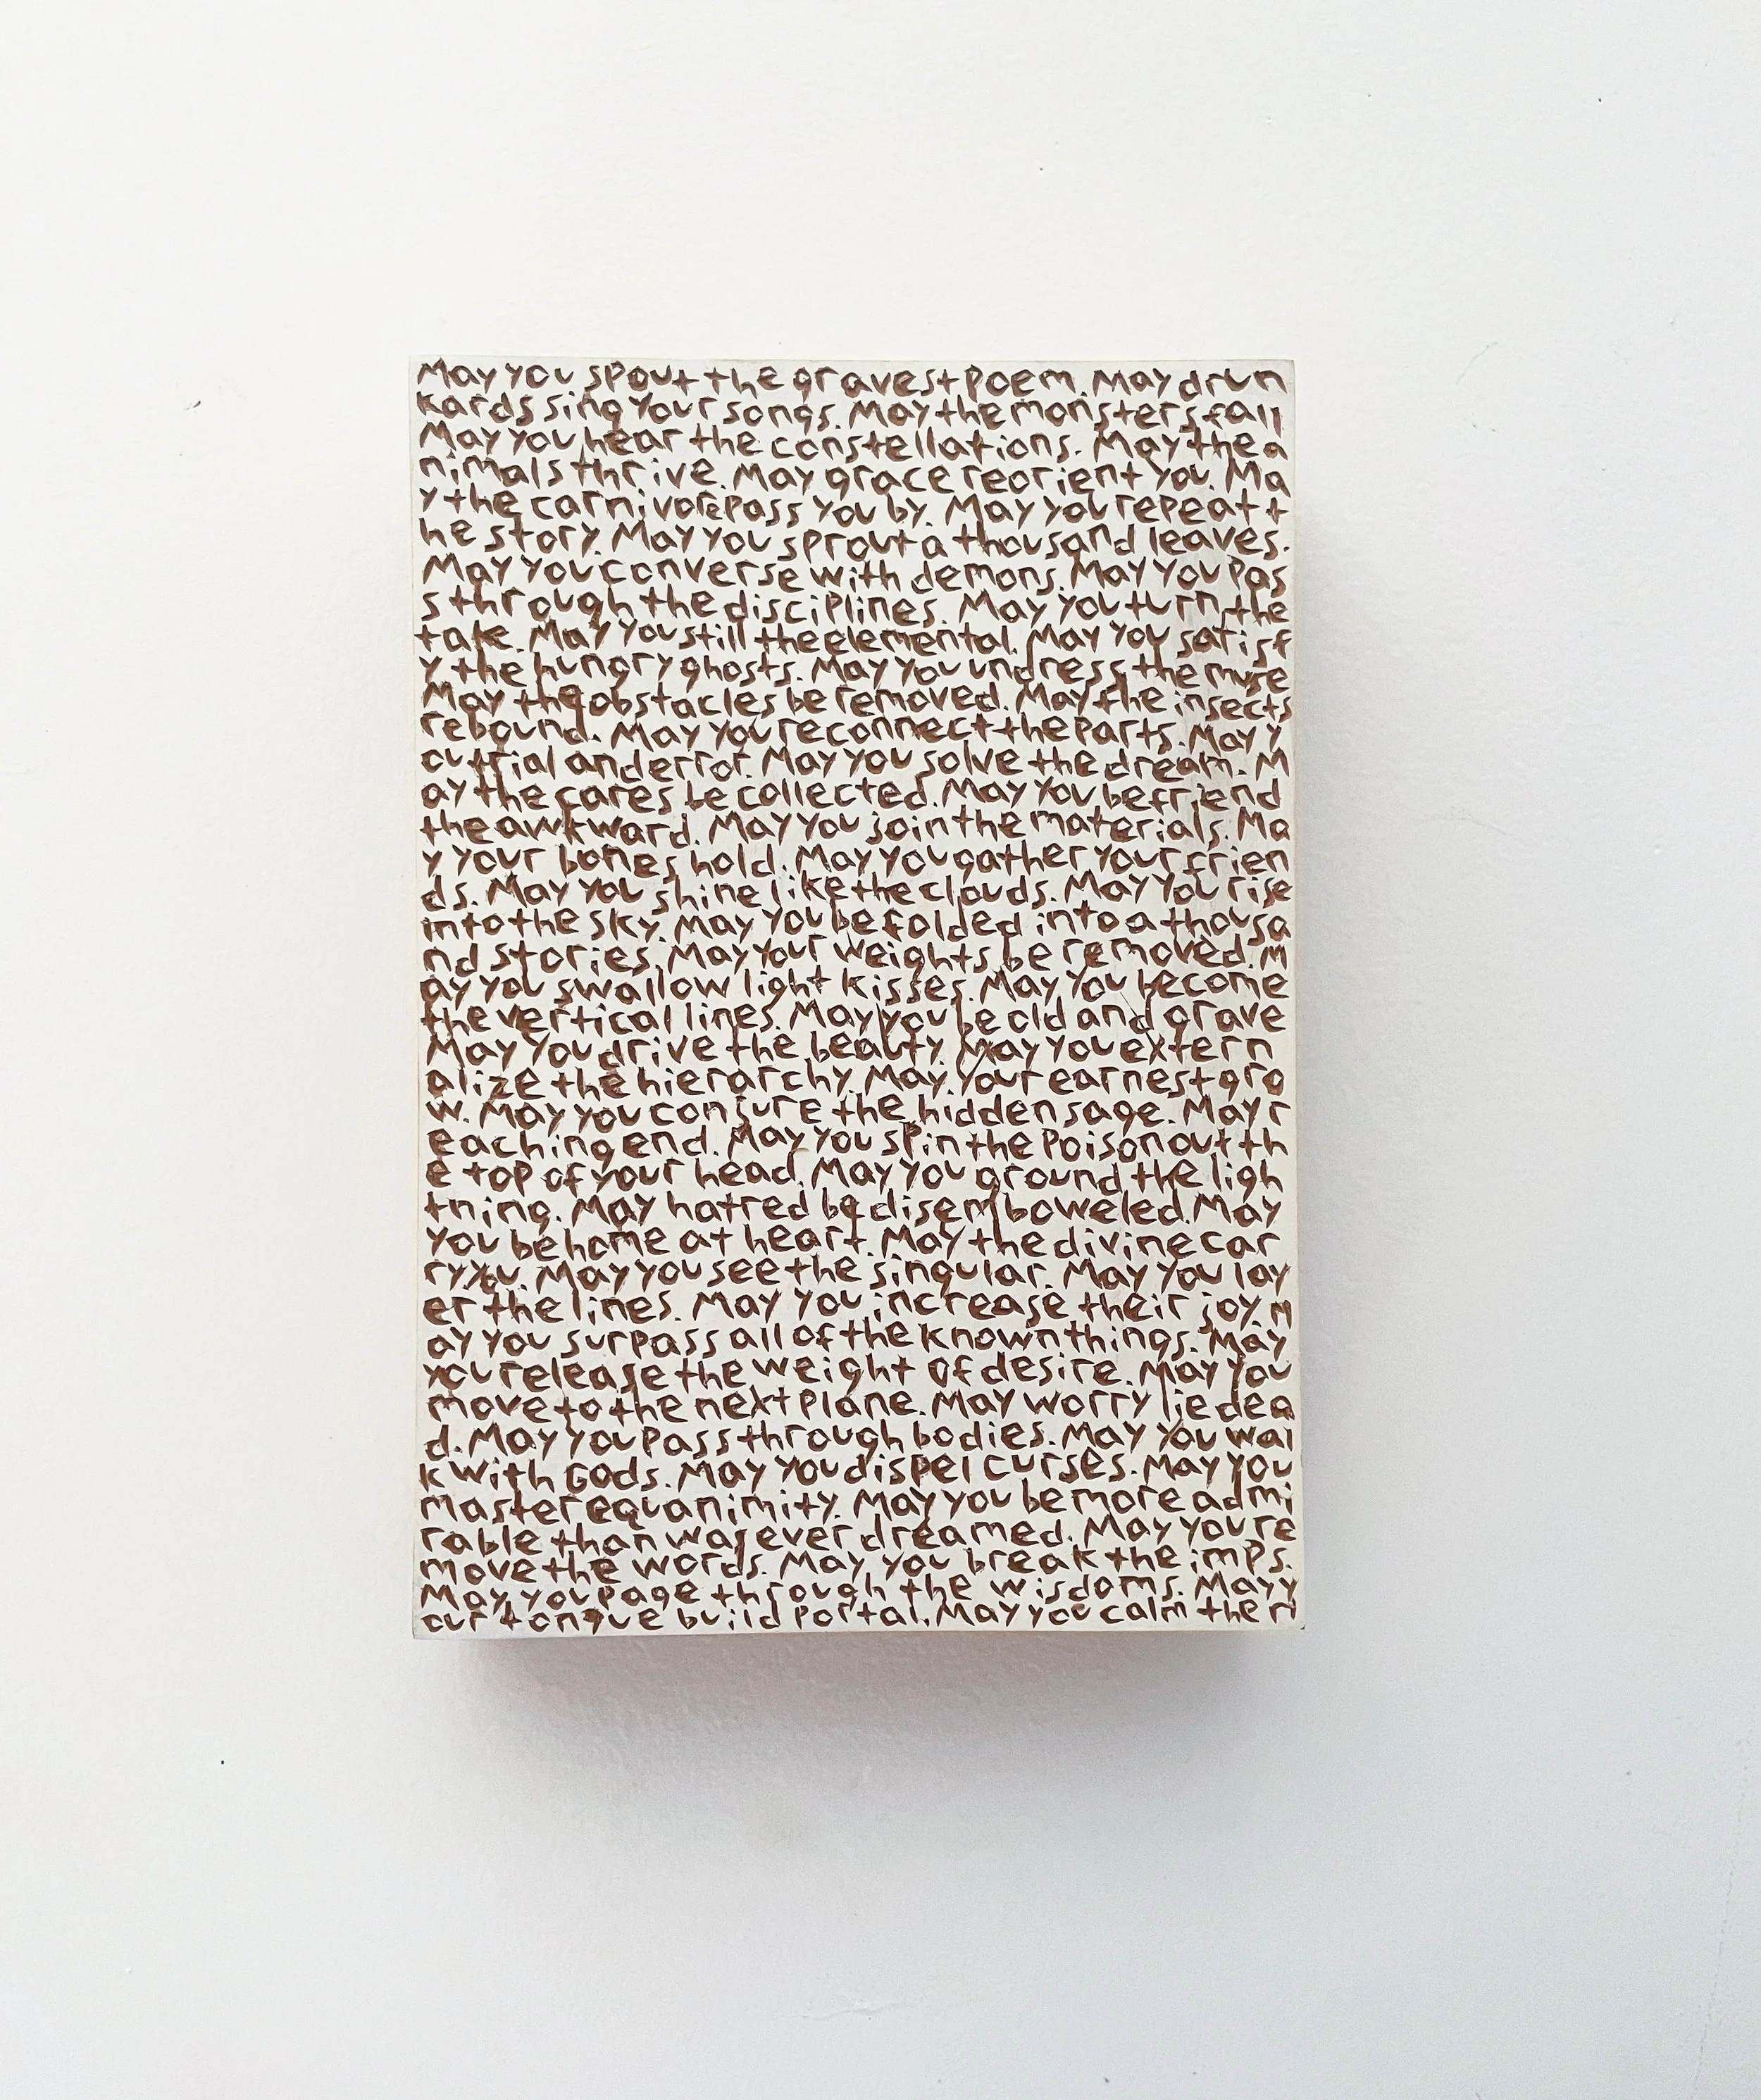 May you spout the gravest poem. May drun
kards sing your songs. May the monsters fall
May you hear the constellations. May the a
nimals thrive. May grace reorient you. Ma
y the carnivore pass you by. May you repeat t
he story. May you sprout a thousand leaves.
May you converse with demons. May you pas
s through the disciplines. May you turn the
take. May you still the elemental. May you satisf
y the hungry ghosts. May you undress the muse
May the obstacles be removed. May the insects
rebound. May you reconnect the parts. May y
ou trial and error. May you solve the dream. M
ay the cares be collected. May you befriend
the awkward. May you join the materials. Ma
y your bones hold. May you gather your frien
ds. May you shine like the clouds. May you rise
into the sky. May you be folded into a thousa
nd stories. May your weights be removed. M
ay you swallow light kisses. May you become
the vertical lines. May you be old and grave
May you drive the beauty. May you extern
alize the hierarchy. May your earnest gro
w. May you conjure the hidden sage. May r
eaching end. May you spin the poison out th
e top of your head. May you ground the ligh
tning. May hatred be disemboweled. May
you be home at heart. May the divine car
ry you. May you see the singular. May you lay
er the lines. May you increase their joy. M
ay you surpass all of the known things. May
you release the weight of desire. May you
move to the next plane. May worry lie dea
d. May you pass through bodies. May you wal
k with Gods. May you dispel curses. May you
master equanimity. May you be more admi
rable than was ever dreamed. May you re
move the words. May you break the imps.
May you page through the wisdoms. May y
our tongue build portal. May you calm the ri